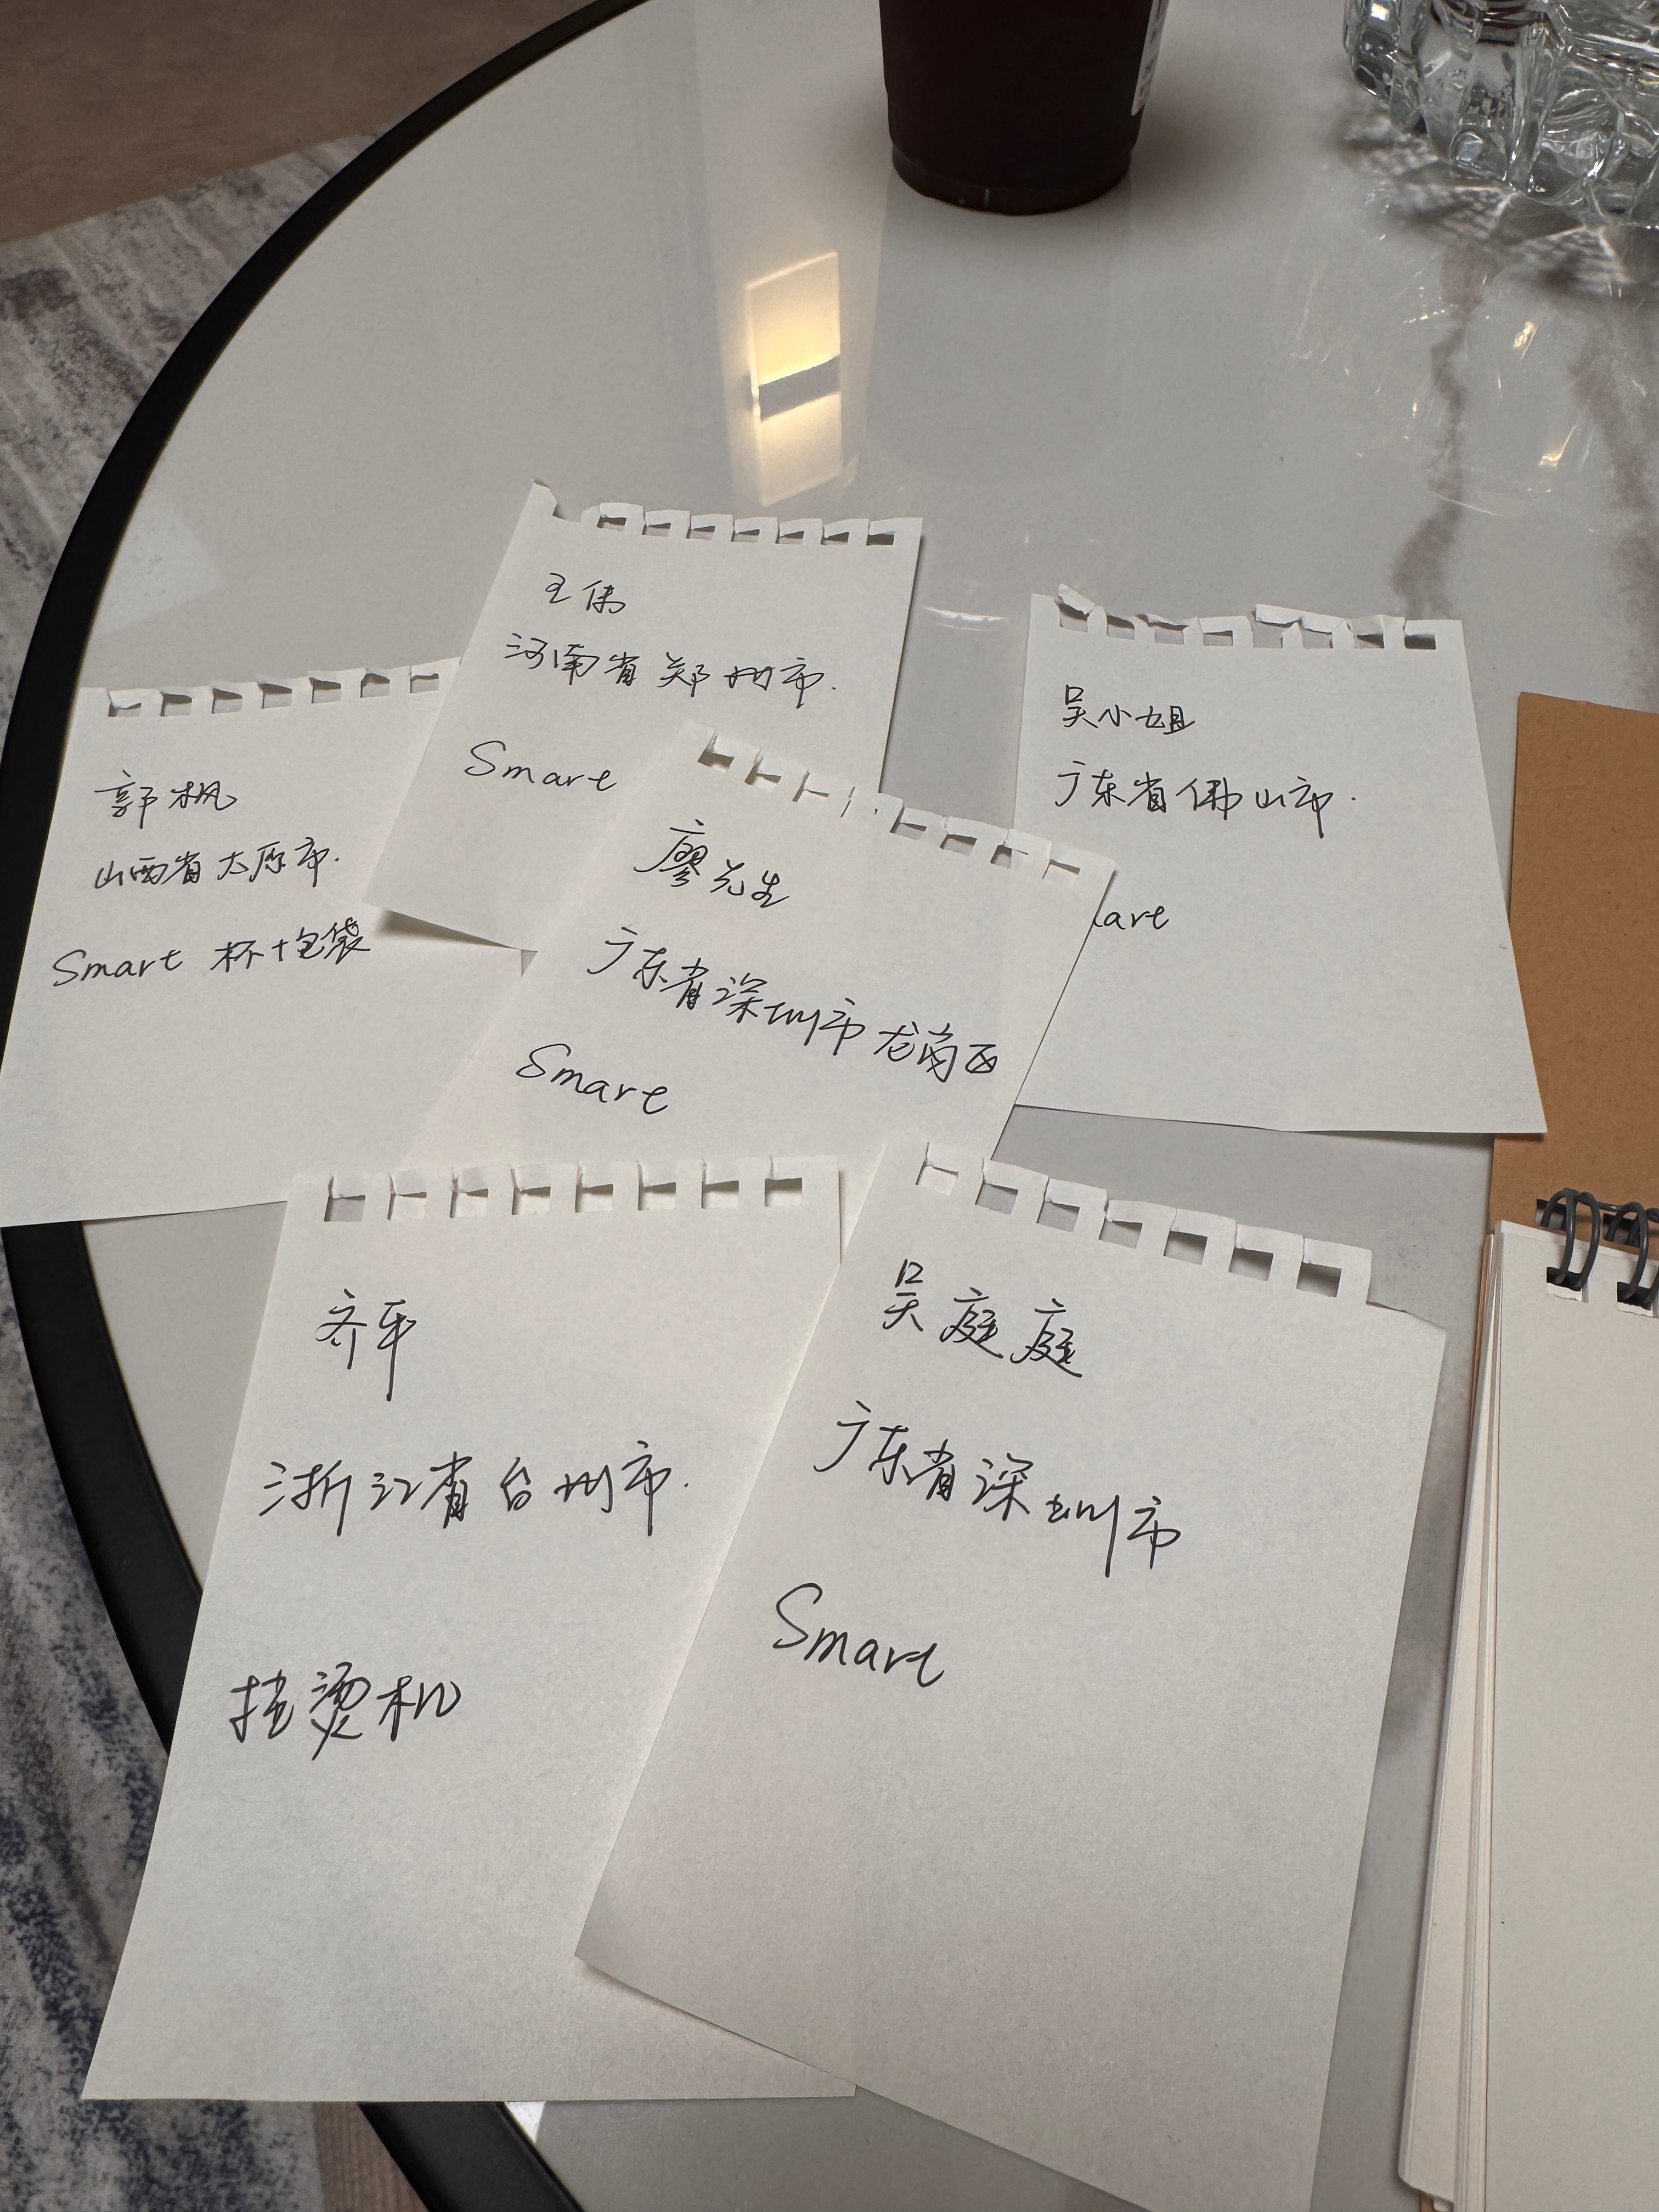 王伟
河南省郑州市.
Smart
吴小姐
广东省佛山市.
art
郭枫
山西省太原市.
Smart 杯+包袋
廖先生
广东省深圳市龙岗区
Smart
齐平
浙江省台州市.
挂烫机
吴庭庭
广东省深圳市
Smart